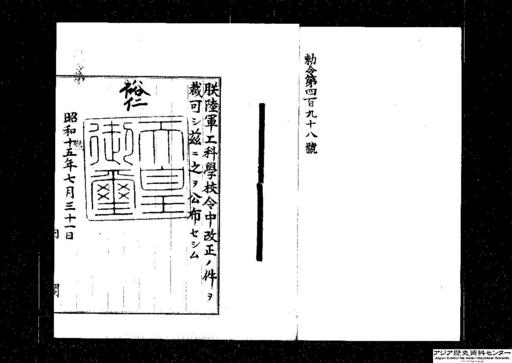 勅令第四百九十八號
朕陸軍工科學校令中改正ノ件ヲ
裁可シ茲ニ之ヲ公布セシム
裕仁
天皇
御璽
昭和十五年七月三十一日
内閣
アジア歴史資料センター
Japan Center for Asian Historical Records